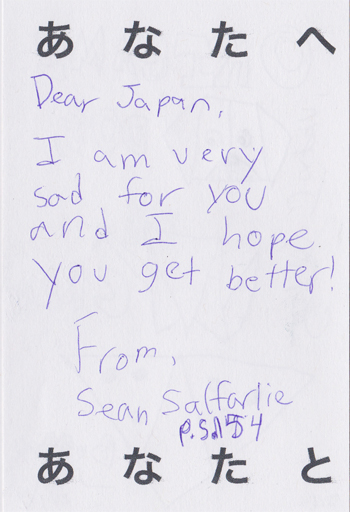 あなたへ
Dear Japan,
I am very
sad for you
and I hope.
you get better!
From,
Sean Salfarlie
P.S.154
あなたと